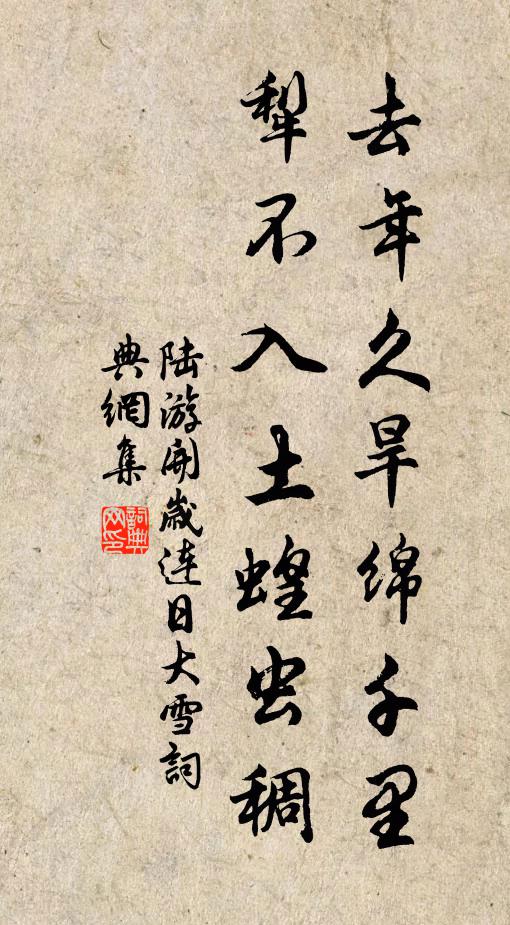 去年久旱绵千里
犁不入土蝗虫稠
陆游開歲連日大雪詞
典網集
詞典
网印